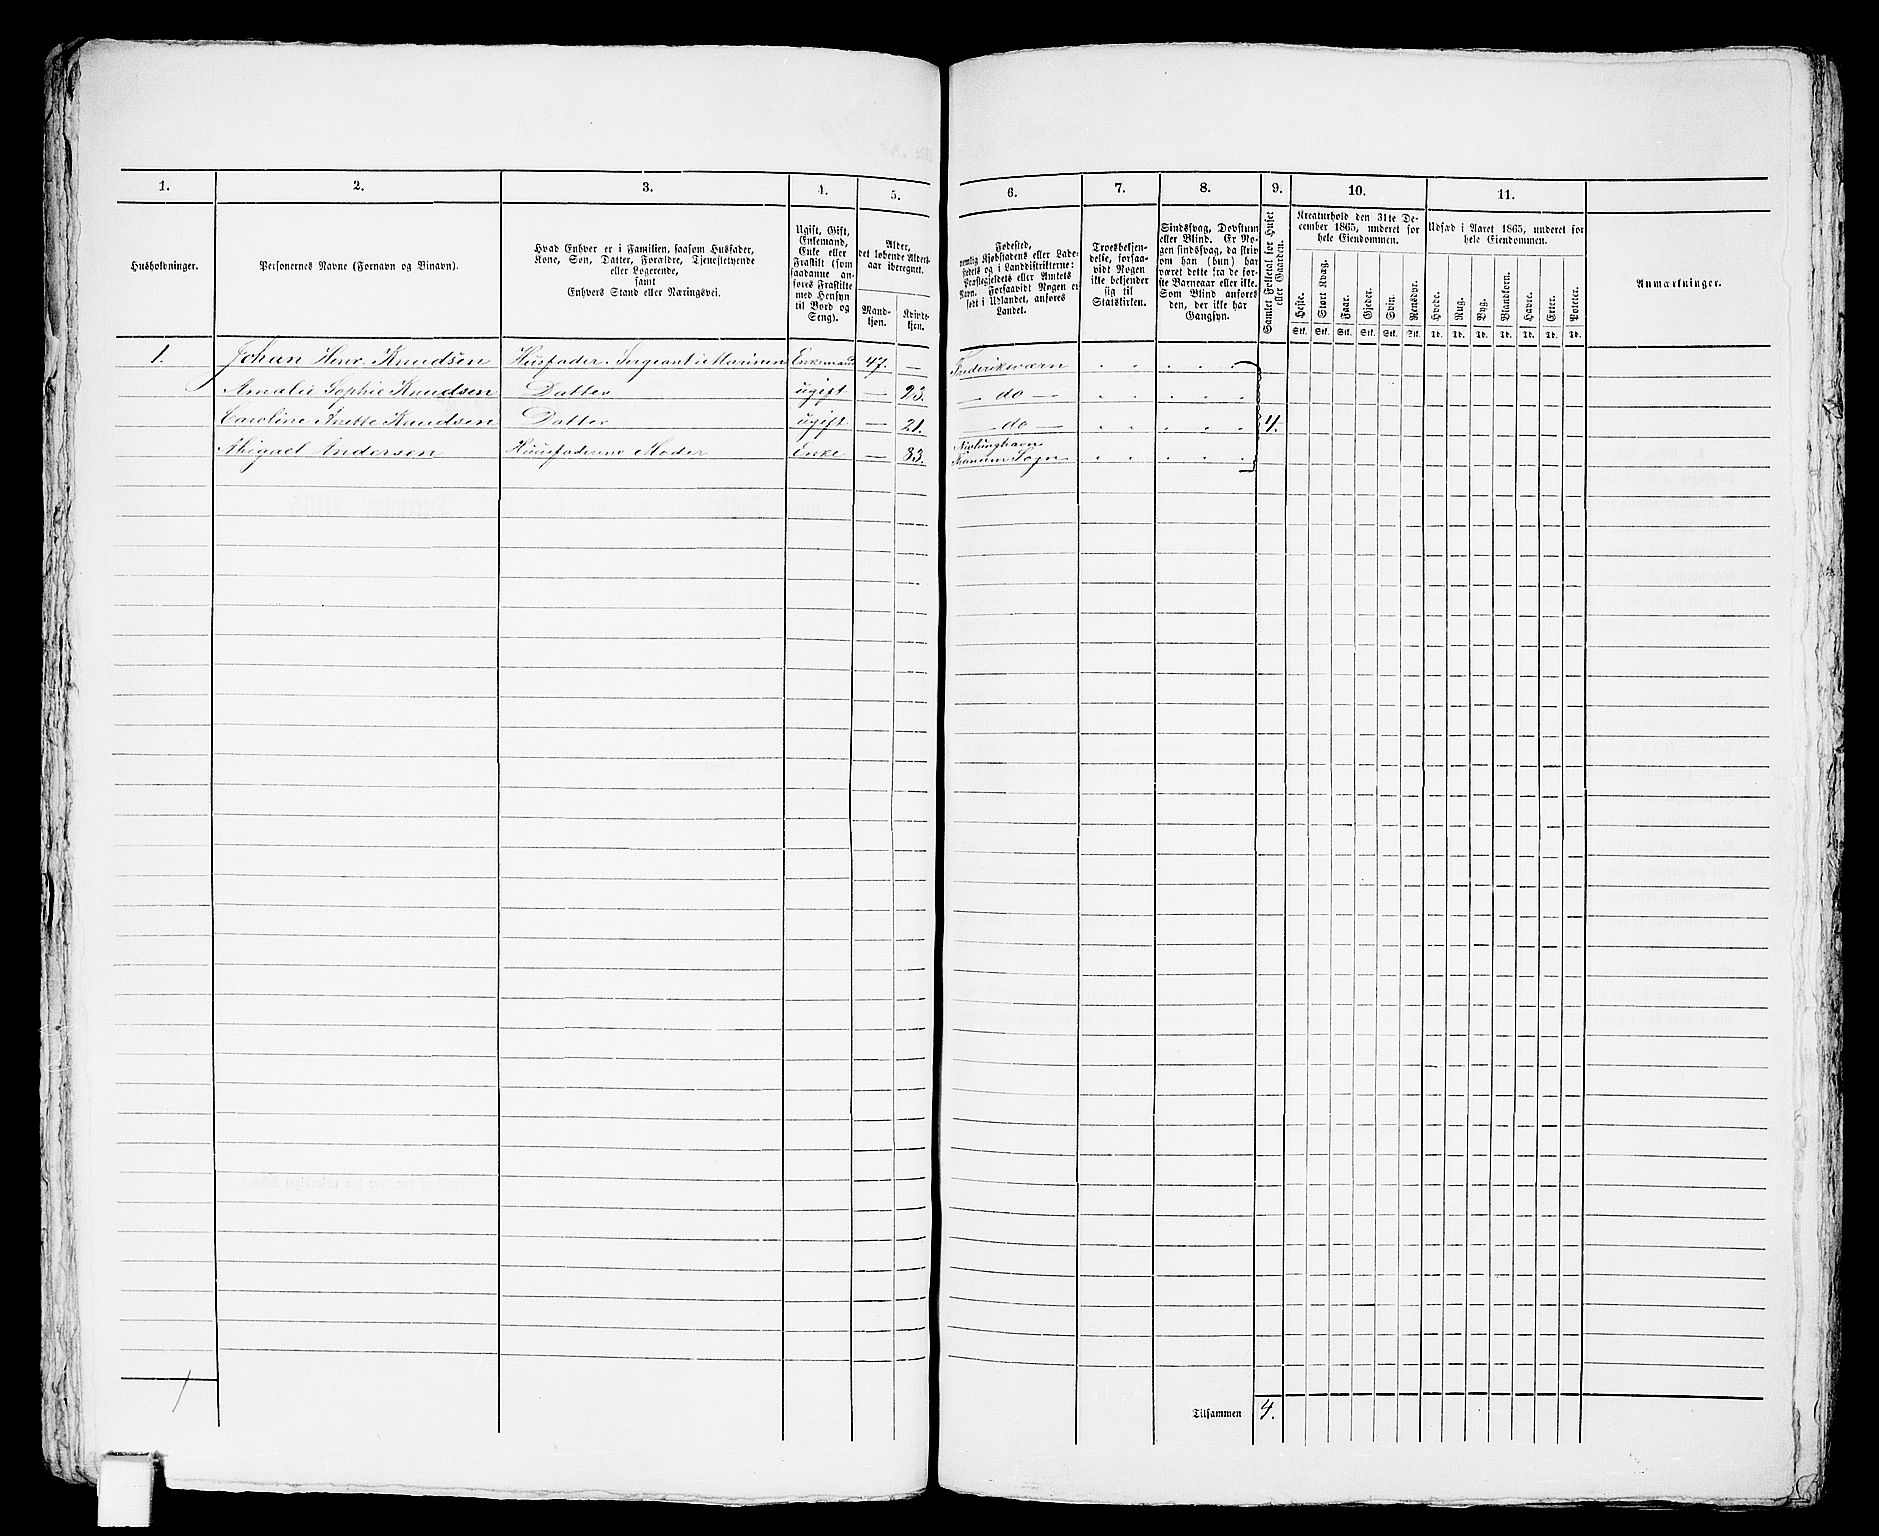 1. 2. 3. 4. 5. 6. 7. 8. 9. 10. 11.
Husholdninger.
Personernes Navne (Fornavn og Binavn).
Hvad Enhver er i Familien, saasom Husfader,
Kone, Søn, Datter, Forældre, Tjenestetyende
eller Logerende,
samt
Enhvers Stand eller Næringsvei.
Ugift, Gift,
Enkemand,
Enke eller
Fraskilt (som
saadanne an-
føres Fraskilte
med Hensyn
til Bord og
Seng).
Alder,
det løbende Alders-
aar iberegnet.
Mand-
kjøn.
Kvinde-
kjøn.
Fødested,
nemlig Kjøbstadens eller Lade-
stedets og i Landdistrikterne:
Præstegjeldets eller Amtets
Navn. Forsaavidt Nogen er
født i Udlandet, anføres
Landet.
Troesbekjen-
delse, forsaa-
vidt Nogen
ikke bekjender
sig til
Statskirken.
Sindssvag, Døvstum
eller Blind. Er No-
gen sindssvag, da skriv
om han (hun) har
været dette fra de før-
ste Barneaar eller ikke.
Som Blind anføres
den, der ikke har
Gangsyn.
Samlet Folketal for Huset
eller Gaarden.
Kreaturhold den 31te De-
cember 1865, anderet for
hele Eiendommen.
Heste. Stort Kvæg. Faar. Gjeder. Svin. Rensdyr.
Stk. Stk. Stk. Stk. Stk. Stk.
Udsæd i Aaret 1865, anderet for
hele Eiendommen.
Hvede. Rug. Byg. Blandkorn. Havre. Erter. Poteter.
Td. Td. Td. Td. Td. Td. Td.
Anmærkninger.
1. Johan Henr. Knudsen Husfader. Sergeant i Marinen Enkemand 47. — Frederiksværn
Amalie Sophie Knudsen Datter ugift — 23. — do —
Caroline Anette Knudsen Datter ugift — 21. — do — 4.
Abigael Andersen Huusfaderens Moder Enke — 83. Sogn
1
Tilsammen 4.